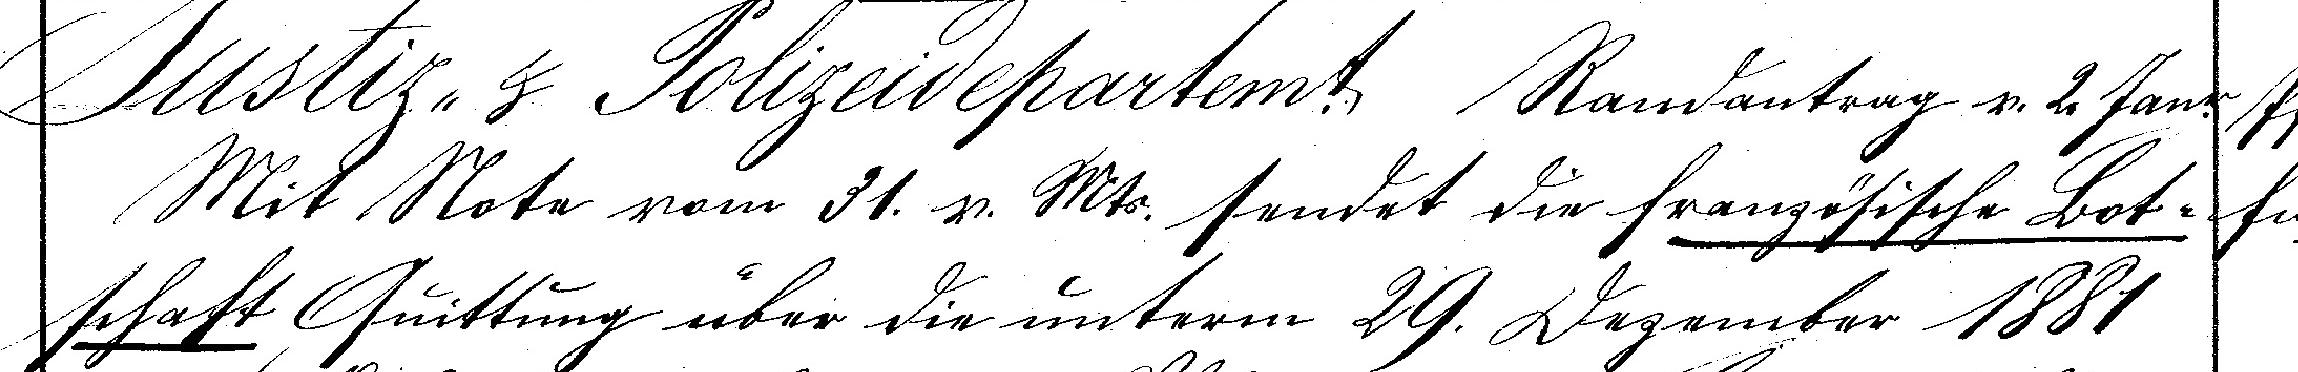 Justiz- & Polizeidepartemt. Randantrag v. 2. Janr.
Mit Note vom 31. v. Mts. sendet die französische Bot-
schaft Quittung über die unterm 29. Dezember 1881